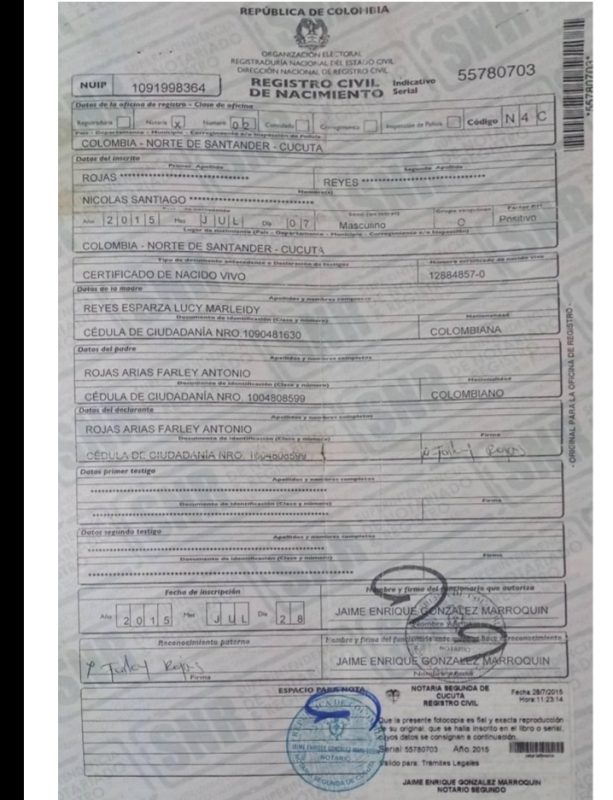 REPÚBLICA DE COLOMBIA
ORGANIZACIÓN ELECTORAL
REGISTRADURÍA NACIONAL DEL ESTADO CIVIL
DIRECCIÓN NACIONAL DE REGISTRO CIVIL
NUIP 1091998364
REGISTRO CIVIL DE NACIMIENTO
Indicativo Serial 55780703
*55780703*
Datos de la oficina de registro - Clase de oficina
Registraduría Notaría X Número 02 Consulado Corregimiento Inspección de Policía Código N 4 C
País - Departamento - Municipio - Corregimiento e/o Inspección de Policía
COLOMBIA - NORTE DE SANTANDER - CUCUTA
Datos del inscrito
Primer Apellido Segundo Apellido
ROJAS ******************** REYES ********************
Nombre(s)
NICOLAS SANTIAGO ********************
Año 2015 Mes JUL Día 07 Masculino O Positivo
Grupo sanguíneo Factor RH
Lugar de nacimiento (País - Departamento - Municipio - Corregimiento e/o Inspección)
COLOMBIA - NORTE DE SANTANDER - CUCUTA
Tipo de documento antecedente o Declaración de testigos Número certificado de nacido vivo
CERTIFICADO DE NACIDO VIVO 12884857-0
Datos de la madre
Apellidos y nombres completos
REYES ESPARZA LUCY MARLEIDY
Documento de identificación (Clase y número) Nacionalidad
CÉDULA DE CIUDADANÍA NRO. 1090481630 COLOMBIANA
Datos del padre
Apellidos y nombres completos
ROJAS ARIAS FARLEY ANTONIO
Documento de identificación (Clase y número) Nacionalidad
CÉDULA DE CIUDADANÍA NRO. 1004808599 COLOMBIANO
Datos del declarante
Apellidos y nombres completos
ROJAS ARIAS FARLEY ANTONIO
Documento de identificación (Clase y número) Firma
CÉDULA DE CIUDADANÍA NRO. 1004808599
Datos primer testigo
Apellidos y nombres completos
********************
Documento de identificación (Clase y número) Firma
********************
Datos segundo testigo
Apellidos y nombres completos
********************
Documento de identificación (Clase y número) Firma
********************
Fecha de inscripción
Nombre y firma del funcionario que autoriza
Año 2015 Mes JUL Día 28
JAIME ENRIQUE GONZALEZ MARROQUIN
Reconocimiento paterno
Nombre y firma del funcionario ante quien se hace el reconocimiento
JAIME ENRIQUE GONZALEZ MARROQUIN
Firma
ESPACIO PARA NOTAS
NOTARIO
JAIME ENRIQUE GONZALEZ MARROQUIN
NOTARIO
NOTARIA SEGUNDA DE CUCUTA
NOTARIA SEGUNDA DE CUCUTA
REGISTRO CIVIL
Fecha 28/7/2015
Hora: 11:23:14
Que la presente fotocopia es fiel y exacta reproducción
de su original, que se halla inscrito en el libro o serial,
cuyos datos se consignan a continuación.
Serial 55780703 Año. 2015
Valido para: Tramites Legales
JAIME ENRIQUE GONZALEZ MARROQUIN
NOTARIO SEGUNDO
- ORIGINAL PARA LA OFICINA DE REGISTRO -